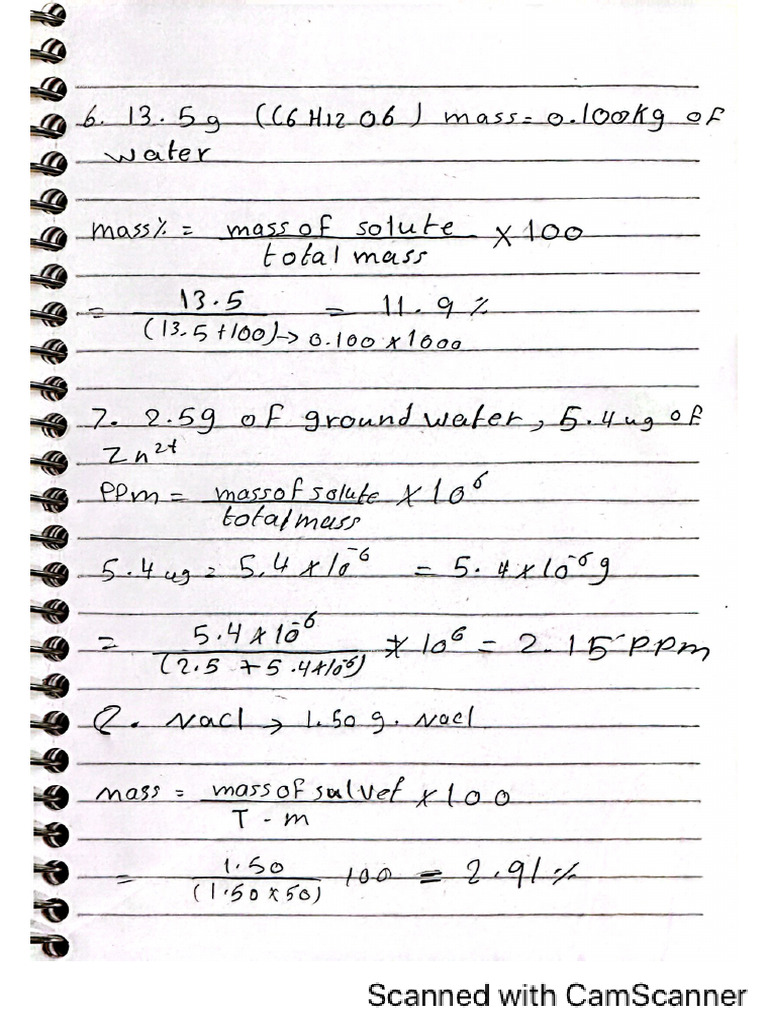 6. 13.5g (C6H12O6) mass= 0.100Kg of
water
mass% = mass of solute / total mass × 100
= 13.5 / (13.5+100)→ 0.100 × 1000 = 11.9 %
7. 2.5g of ground water, 5.4ug of
Zn²⁺
PPm = mass of solute / total mass × 10⁶
5.4 ug = 5.4 × 10⁻⁶ = 5.4 × 10⁻⁶g
= 5.4 × 10⁻⁶ / (2.5 + 5.4×10⁻⁶) × 10⁶ = 2.15 PPm
Q. Nacl → 1.50 g. Nacl
mass = mass of salvet × 100 / T - m
= 1.50 / (1.50 × 50) 100 = 2.91 %
Scanned with CamScanner